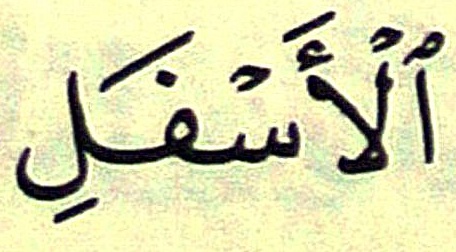 ٱلْأَسْفَلِ